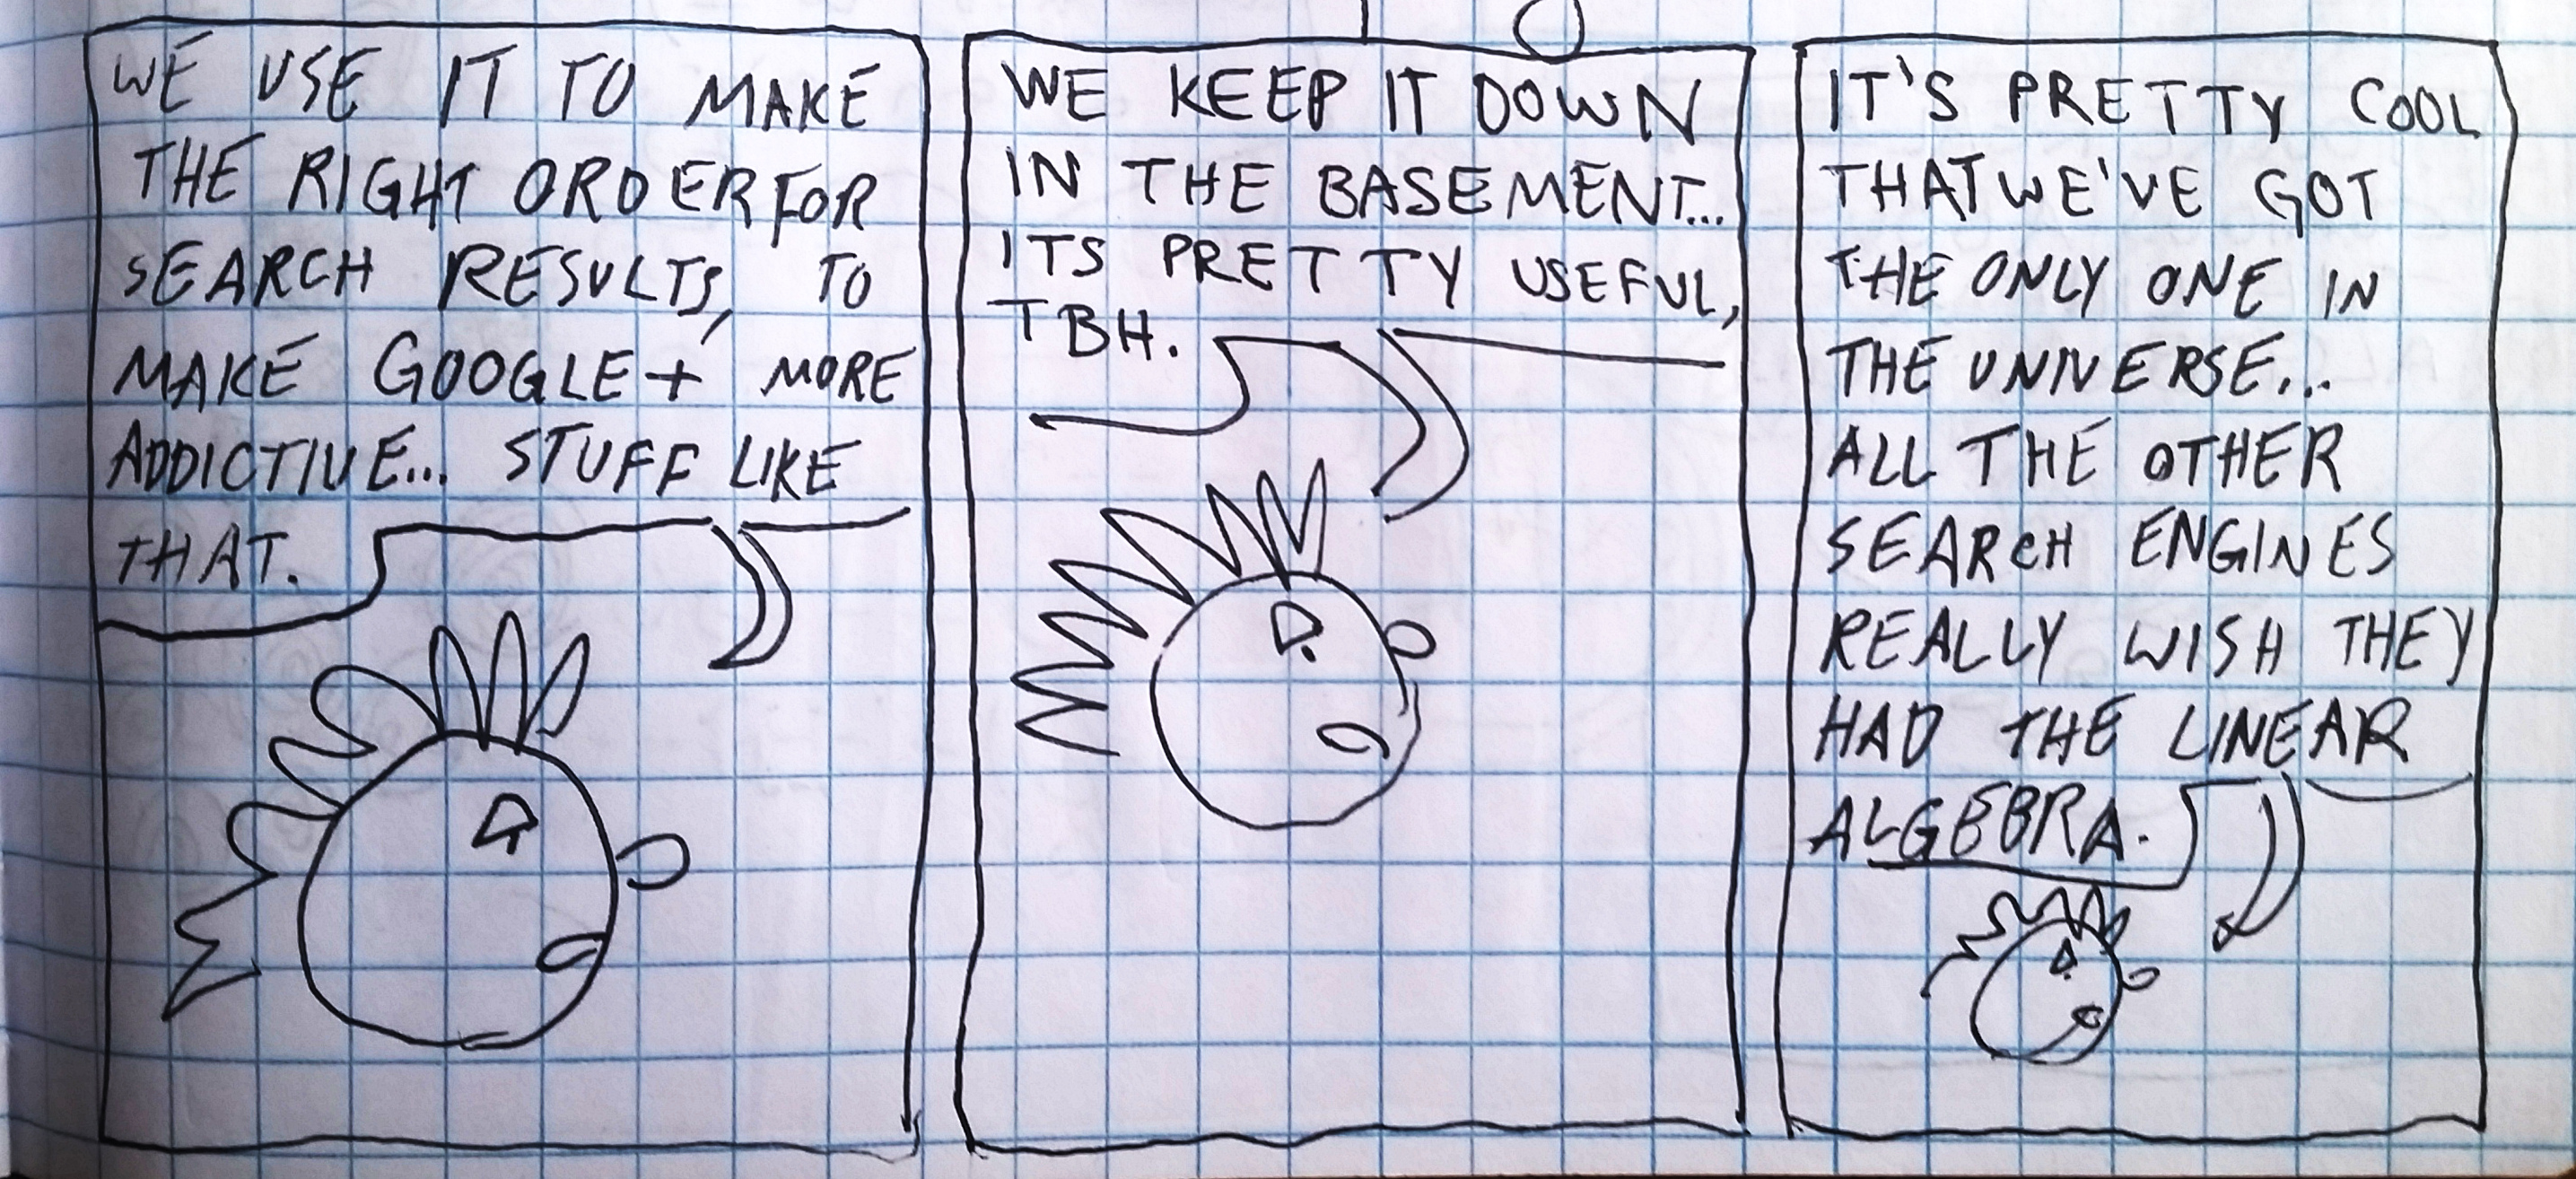 WE USE IT TO MAKE
THE RIGHT ORDER FOR
SEARCH RESULTS, TO
MAKE GOOGLE+ MORE
ADDICTIVE... STUFF LIKE
THAT.
WE KEEP IT DOWN
IN THE BASEMENT...
ITS PRETTY USEFUL,
TBH.
IT'S PRETTY COOL
THAT WE'VE GOT
THE ONLY ONE IN
THE UNIVERSE...
ALL THE OTHER
SEARCH ENGINES
REALLY WISH THEY
HAD THE LINEAR
ALGEBRA.